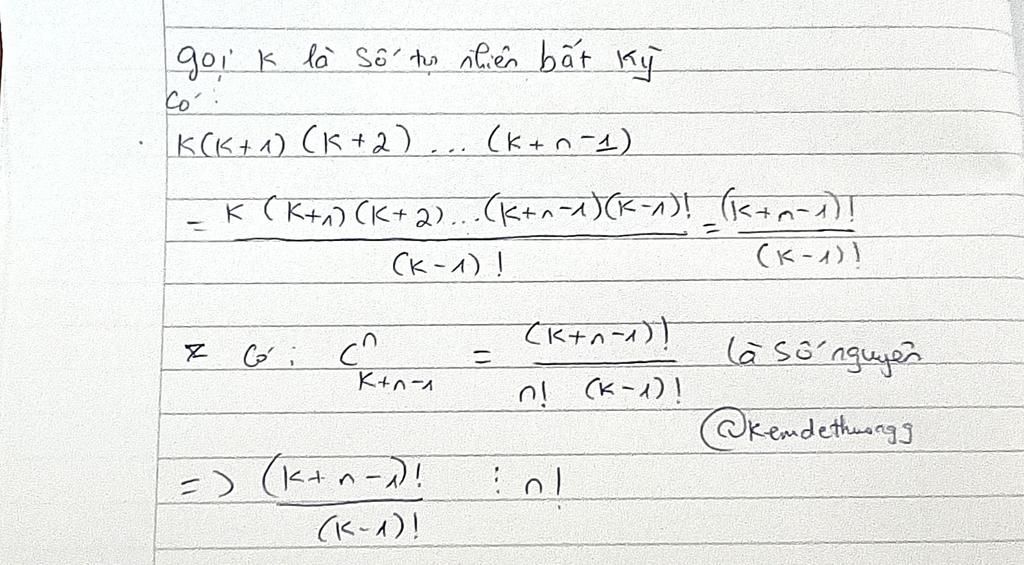 gọi K là số tự nhiên bất kỳ
Có:
K(K+1)(K+2)...(K+n-1)
= K(K+1)(K+2)...(K+n-1)(K-1)! / (K-1)! = (K+n-1)! / (K-1)!
Có: C^n_{K+n-1} = (K+n-1)! / n! (K-1)! là số nguyên
@kemdethuongg
=> (K+n-1)! / (K-1)! ⋮ n!